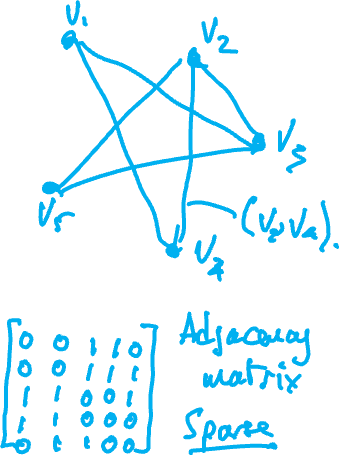 V₁
V₂
V₃
V₅
(V₂, V₄).
V₄
0 0 1 1 0
0 0 1 1 1
1 1 0 0 1
1 1 0 0 0
0 1 1 0 0
Adjacency
matrix
Sparse